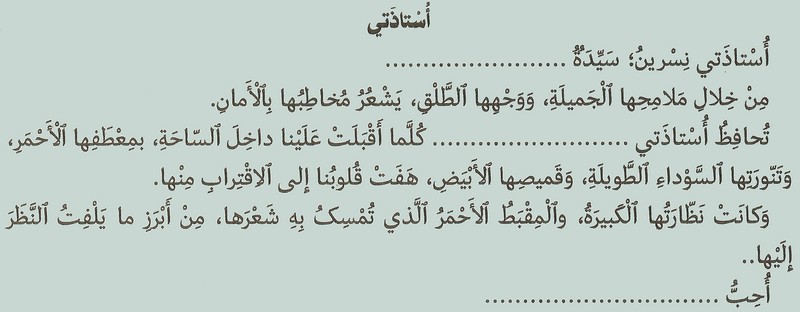 أُسْتاذَتي
أُسْتاذَتي نِسْرينُ؛ سَيِّدَةٌ ........................
مِنْ خِلالِ مَلامِحِها ٱلْجَميلَةِ، وَوَجْهِها ٱلطَّلْقِ، يَشْعُرُ مُخاطِبُها بِٱلْأَمانِ.
تُحافِظُ أُسْتاذَتي .......................... كُلَّما أَقْبَلَتْ عَلَيْنا داخِلَ ٱلسّاحَةِ، بِمِعْطَفِها ٱلْأَحْمَرِ،
وَتَنّورَتِها ٱلسَّوْداءِ ٱلطَّويلَةِ، وَقَميصِها ٱلْأَبْيَضِ، هَفَتْ قُلوبُنا إِلى ٱلِاقْتِرابِ مِنْها.
وَكانَتْ نَظّارَتُها ٱلْكَبيرَةُ، وٱلْمِقْبَطُ ٱلْأَحْمَرُ ٱلَّذي تُمْسِكُ بِهِ شَعْرَها، مِنْ أَبْرَزِ ما يَلْفِتُ ٱلنَّظَرَ
إِلَيْها..
أُحِبُّ ...............................